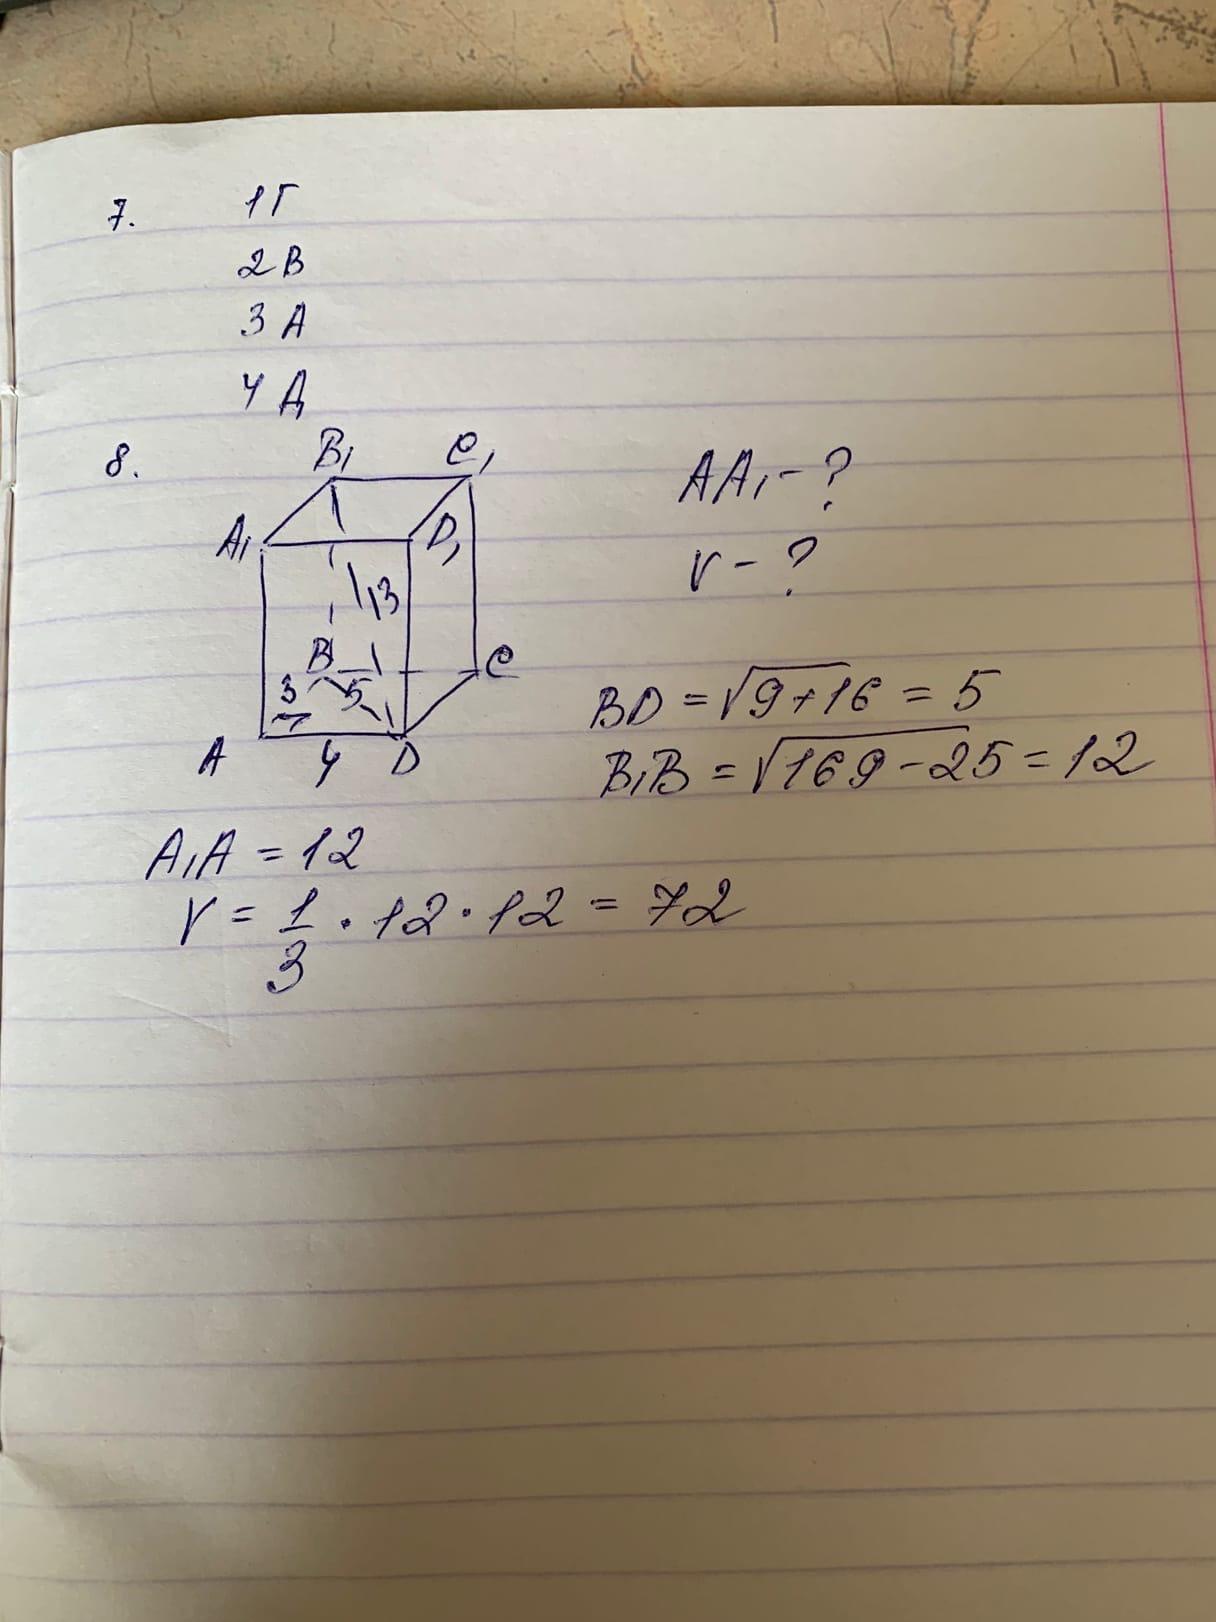 7. 1Г
2В
3А
4Д
8.
B₁ C₁
A₁ D₁
13
B C
3 5
A 4 D
AA₁ - ?
V - ?
BD = √9+16 = 5
B₁B = √169-25 = 12
A₁A = 12
V = 1/3 · 12 · 12 = 72